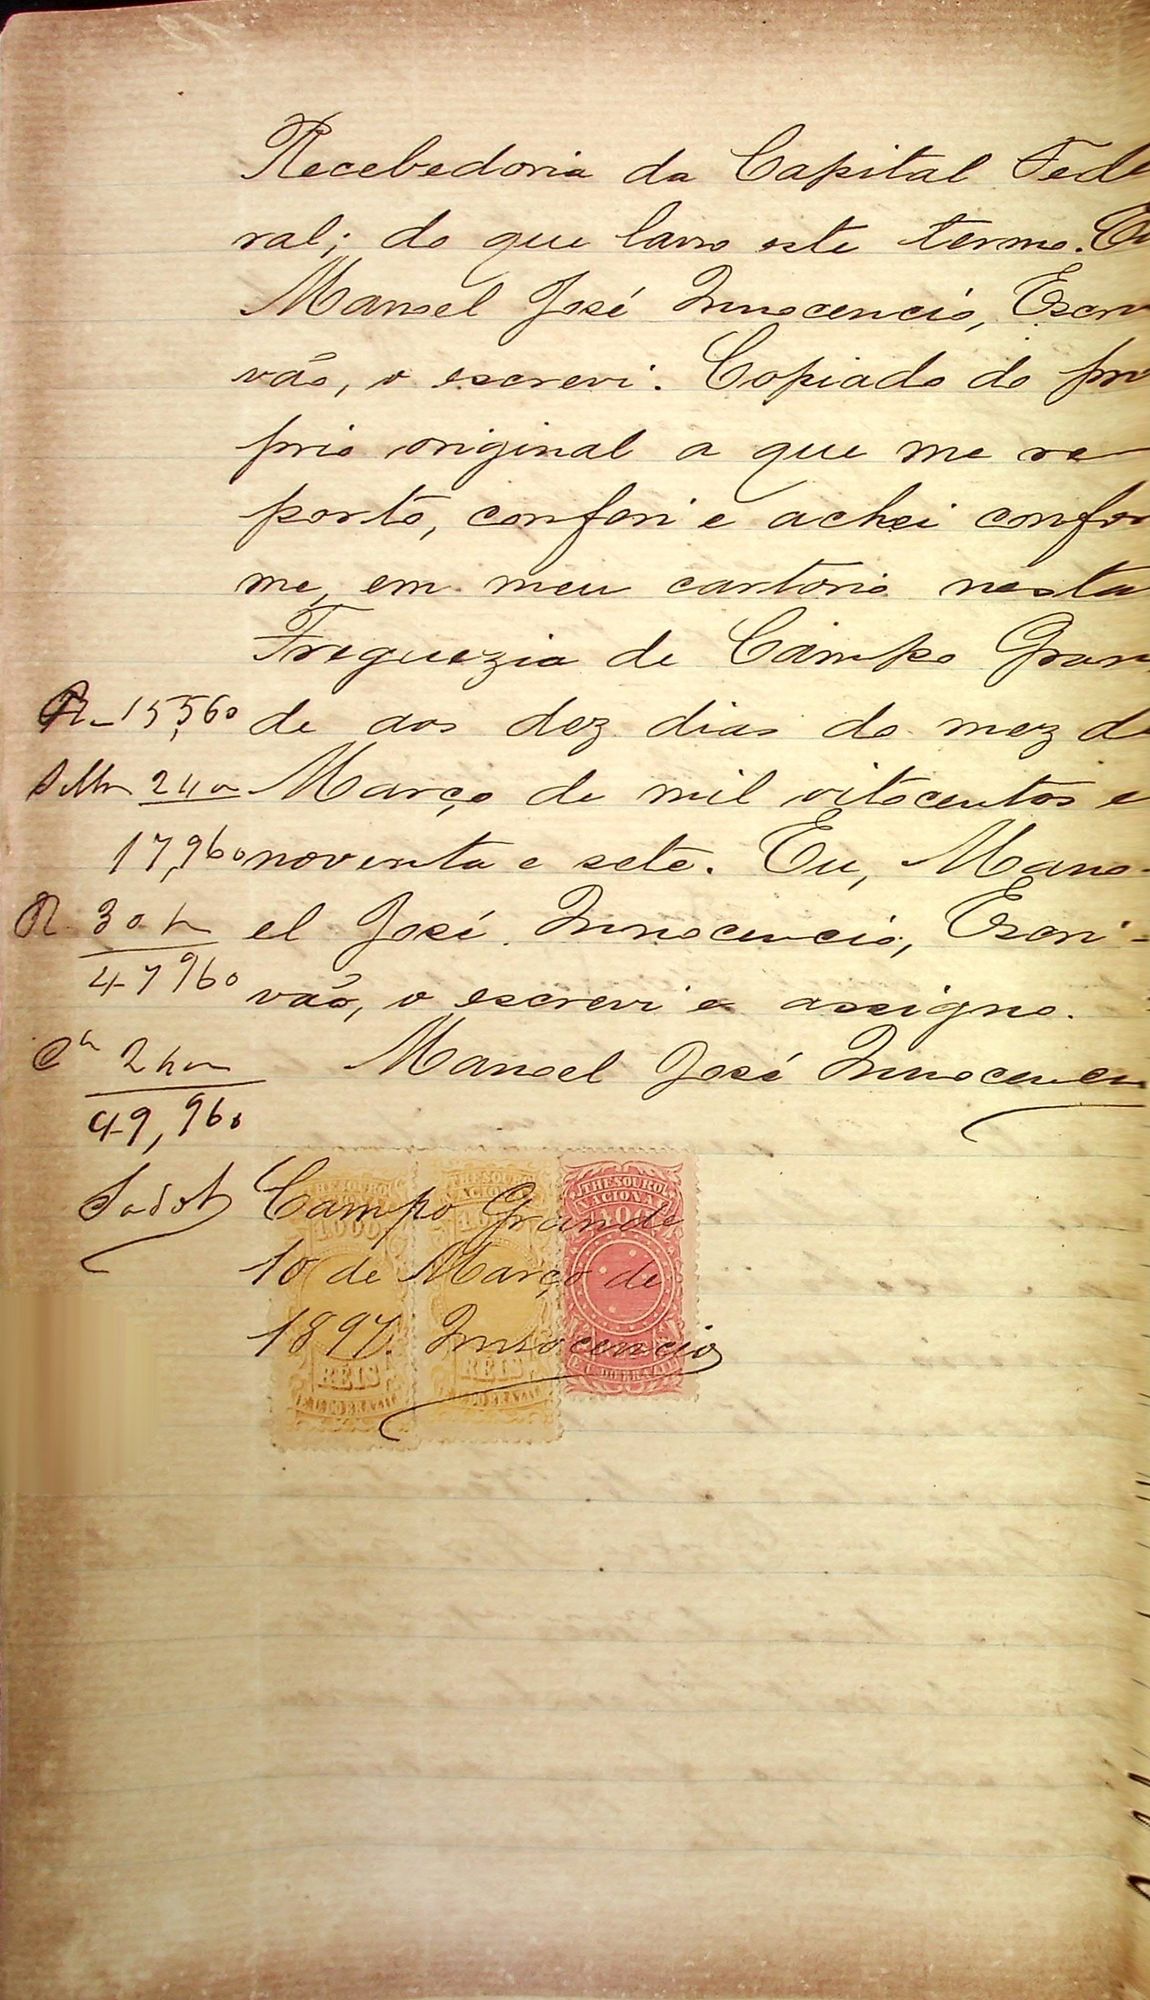 Recebedoria da Capital Fede
ral; do que lavro este termo. Eu
Manoel José Innocencio, Escri
vão, o escrevi. Copiado do pro
prio original a que me re
porto, conferi e achei confor
me, em meu cartorio nesta
Freguezia de Campo Gran
R. 15,560 de aos dez dias do mez de
Sello 2400 Março de mil oitocentos e
17,960 noventa e sete. Eu, Mano-
R. 30 el José Innocencio, Escri-
47960 vão, o escrevi e assigno.
Manoel José Innocencio
49,960
Campo Grande
10 de Março de
1897. Innocencio
THESOURO NACIONAL
1000
REIS
E. U. DO BRAZIL
THESOURO NACIONAL
REIS
DO BRAZIL
THESOURO NACIONAL